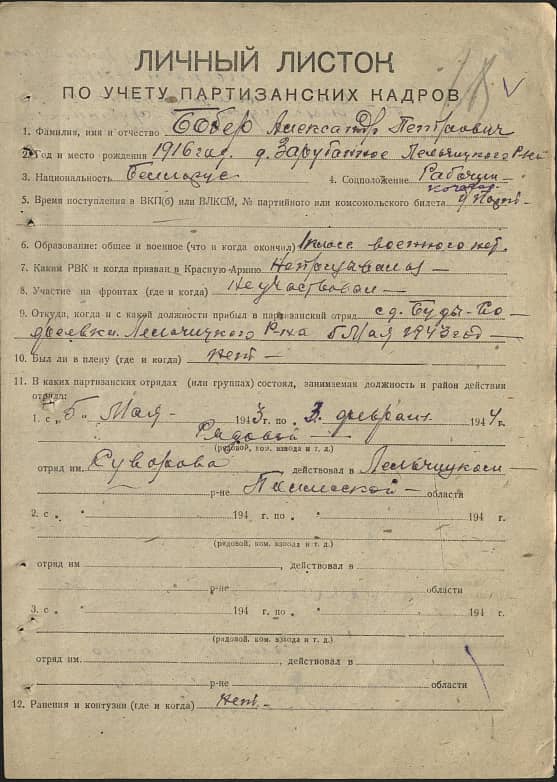 ЛИЧНЫЙ ЛИСТОК
ПО УЧЕТУ ПАРТИЗАНСКИХ КАДРОВ
1. Фамилия, имя и отчество Бобер Александр Петрович
2. Год и место рождения 1916 год. д. Зарубанное Лельчицкого Р-на
3. Национальность Беллорус 4. Соцположение Рабочий
5. Время поступления в ВКП(б) или ВЛКСМ, № партийного или комсомольского билета
6. Образование: общее и военное (что и когда окончил) 1 класс военного нет.
7. Каким РВК и когда призван в Красную Армию Непризывался –
8. Участие на фронтах (где и когда) Неучаствовал –
9. Откуда, когда и с какой должности прибыл в партизанский отряд с д. Буды-
Лельчицкого Р-на 5 Мая 1943 год –
10. Был ли в плену (где и когда) нет –
11. В каких партизанских отрядах (или группах) состоял, занимаемая должность и район действия
отряда:
1. с „5„ Мая – 1943 г. по „3„ февраля 1944 г.
Рядовой –
(рядовой, ком. взвода и т. д.)
отряд им. Суворова действовал в Лельчицком –
р-не Полесской – области
2. с „ „ 194 г. по „ „ 194 г.
(рядовой, ком. взвода и т. д.)
отряд им. , действовал в
р-не области
3. с „ „ 194 г. по „ „ 194 г.
(рядовой, ком. взвода и т. д.)
отряд им. , действовал в
р-не области
12. Ранения и контузии (где и когда) нет –